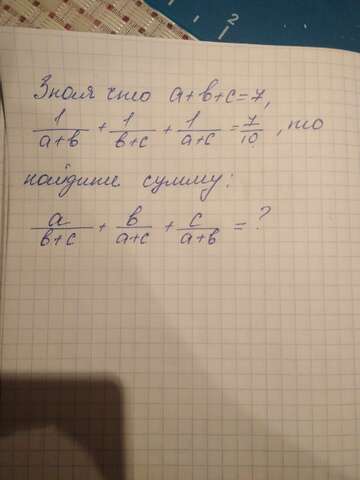 Зная что a+b+c=7,
1/(a+b) + 1/(b+c) + 1/(a+c) = 7/10, то
найдите сумму:
a/(b+c) + b/(a+c) + c/(a+b) = ?